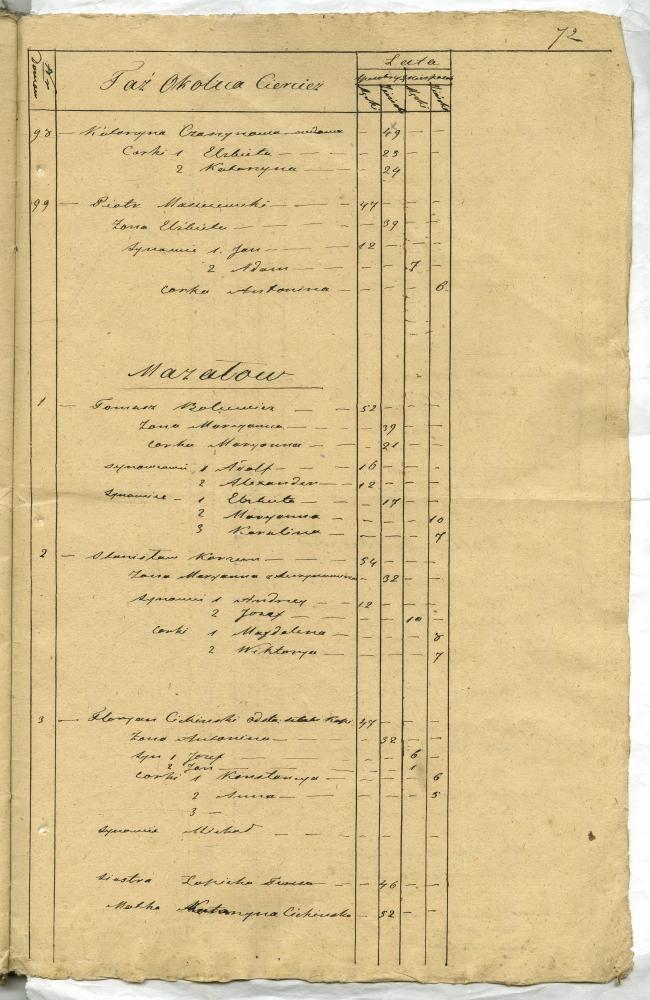 72
Nr Domow
Taż Okolica Cierciez
Lata
Męski
Męski
98 — Katarzyna — 49 — —
Corki 1 Elżbieta — — 23 — —
2 Katarzyna — — 24 — —
99 — Piotr — 47 — — —
Zona Elżbieta — — 39 — —
Synowie 1. Jan — 12 — — —
2 Adam — — — 7 —
Corka Antonina — — — — 6
Mazałow
1 — Tomasz — 52 — — —
Zona Maryanna — — 39 — —
Corka Maryanna — — 21 — —
1 Adolf — 16 — — —
2 Alexander — 12 — — —
1 Elżbieta — — 17 — —
2 Maryanna — — — — 10
3 Karolina — — — — 7
2 — Stanisław — 54 — — —
Zona Maryanna — 32 — —
Synowie 1 Andrzey — 12 — — —
2 Jozef — — — 10 —
Corki 1 Magdalena — — — — 8
2 Wiktorya — — — — 7
3 — Floryan Cichinski 47 — — —
Zona Antonina — — 32 — —
Syn 1 Jozef — — — 6 —
2 Jan — — — 1 —
Corki 1 Konstancya — — — — 6
2 Anna — — — — 5
3 —
Synowie Michał — — — —
Siostra — — 46 — —
Matka Katarzyna Cichinska — 52 — —